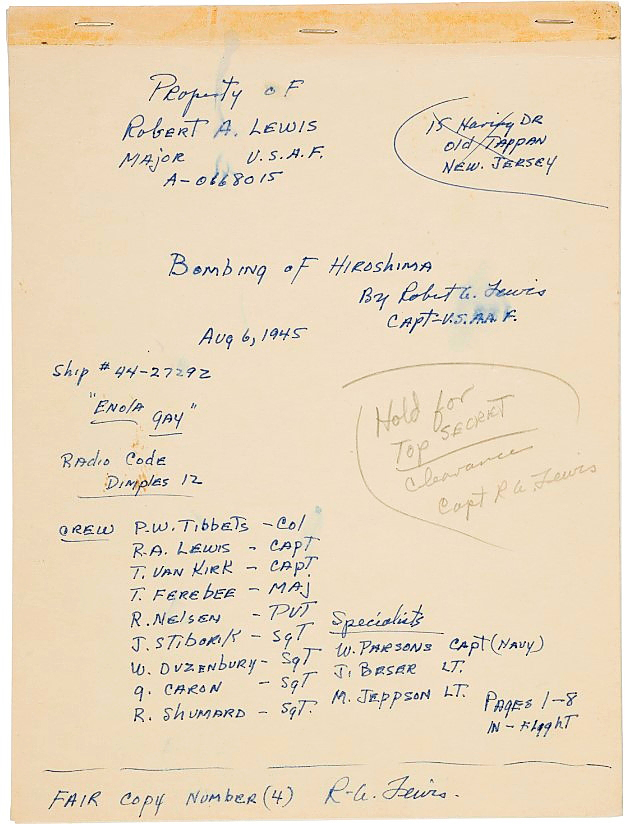 Property of
Robert A. Lewis
Major U.S.A.F.
A-0668015
15 Haring DR
Old Tappan
New. Jersey
Bombing of Hiroshima
By Robert A. Lewis
Capt-U.S.AA.F.
Aug 6, 1945
Ship # 44-27292
"Enola
Gay"
Radio Code
Dimples 12
Hold for
Top Secret
Clearance
Capt R A. Lewis
CREW P.W. Tibbets - Col
R.A. Lewis - Capt
T. Van Kirk - Capt
T. Ferebee - Maj
R. Nelsen - Pvt
J. Stiborik - Sgt
W. Duzenbury - Sgt
G. Caron - Sgt
R. Shumard - Sgt.
Specialists
W. Parsons Capt (Navy)
J. Beser Lt.
M. Jeppson Lt.
Pages 1-8
In-Flight
Fair Copy Number (4) R-A. Lewis.